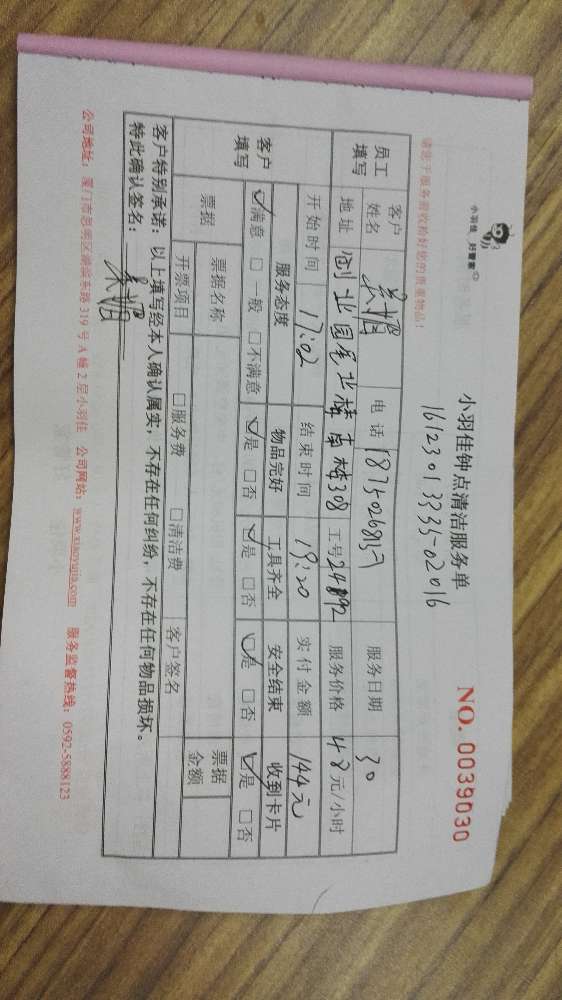 小羽佳 好管家
小羽佳钟点清洁服务单
NO. 0039030
1612301333502016
请您于服务前收检好您的贵重物品！
员工填写 客户姓名 电话 服务日期 30
地址 创业园 工号 服务价格 48 元/小时
开始时间 17:02 结束时间 19:20 实付金额 144元
客户填写 服务态度 物品完好 工具齐全 安全结束 收到卡片
☑满意 □一般 □不满意 ☑是 □否 ☑是 □否 ☑是 □否 ☑是 □否
票据 票据名称 票据金额
开票项目 □服务费 □清洁费 客户签名
客户特别承诺：以上填写经本人确认属实，不存在任何纠纷，不存在任何物品损坏。
特此确认签名：
公司地址：厦门市思明区湖滨东路319号A幢2层小羽佳 公司网站：www.xiaoyujia.com 服务监督热线：0592-5888123